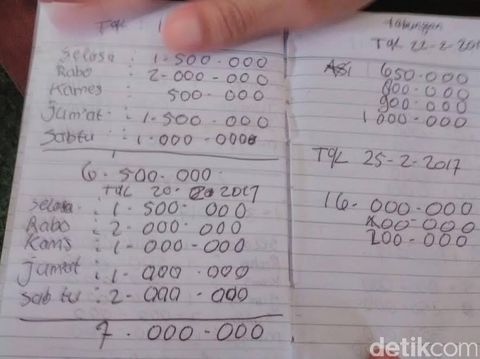 Tgl : 1
Selasa : 1-500.000
Rabo : 2-000-000
Kames 500-000
Jum'at : 1-500.000
Sabtu : 1-000-000
6.500.000.
Tgl 20. 2017
Selasa : 1-500-000
Rabo : 2-000-000
Kams : 1-000-000
Jumat : 1-000.000
Sabtu : 2-000-000
7.000-000
Tabungan
Tgl 22-2-201
650-000
800-000
900-000
1 000-000
Tgl 25-2-2017
16-000-000
200-000
detikcom